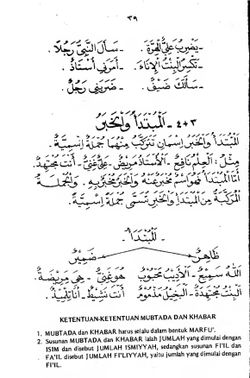 ٣٩
يَضْرِبُ عَلِيٌّ الْهِرَّةَ - سَأَلَ النَّبِيَّ رَجُلٌ
تَكْسِرُ الْبِنْتُ الْإِنَاءَ - أَمَرَنِي أُسْتَاذٌ
سَأَلَكَ ضَيْفٌ - ضَرَبَنِي رَجُلٌ
٣+٤ - اَلْمُبْتَدَأُ وَالْخَبَرُ
اَلْمُبْتَدَأُ وَالْخَبَرُ اِسْمَانِ تَتَرَكَّبُ مِنْهُمَا جُمْلَةٌ اِسْمِيَّةٌ
مِثْلُ : اَلْعِلْمُ نَافِعٌ - اَلْأُسْتَاذُ مَرِيضٌ - عَلِيٌّ غَنِيٌّ - أَنْتَ مُجْتَهِدٌ
اَمَّا الْمُبْتَدَأُ فَهُوَ اسْمٌ مُخْبَرٌ عَنْهُ وَالْخَبَرُ مُخْبَرٌ بِهِ - وَالْجُمْلَةُ
الْمُرَكَّبَةُ مِنَ الْمُبْتَدَأِ وَالْخَبَرِ تُسَمَّى جُمْلَةً اِسْمِيَّةً
اَلْمُبْتَدَأُ :
ظَاهِرٌ ضَمِيْرٌ
اَللّٰهُ سَمِيعٌ - اَلْأَدِيبُ مَحْبُوبٌ هُوَ غَنِيٌّ - هِيَ مَرِيضَةٌ
اَلْبِنْتُ مُجْتَهِدَةٌ - اَلْبَخِيلُ مَذْمُومٌ أَنْتَ نَشِيطٌ -
KETENTUAN-KETENTUAN MUBTADA DAN KHABAR
1. MUBTADA dan KHABAR harus selalu dalam bentuk MARFU'.
2. Susunan MUBTADA dan KHABAR ialah JUMLAH yang dimulai dengan
ISIM dan disebut JUMLAH ISMIYYAH, sedangkan susunan FI'IL dan
FA'IL disebut JUMLAH FI'LIYYAH, yaitu jumlah yang dimulai dengan
FI'IL.